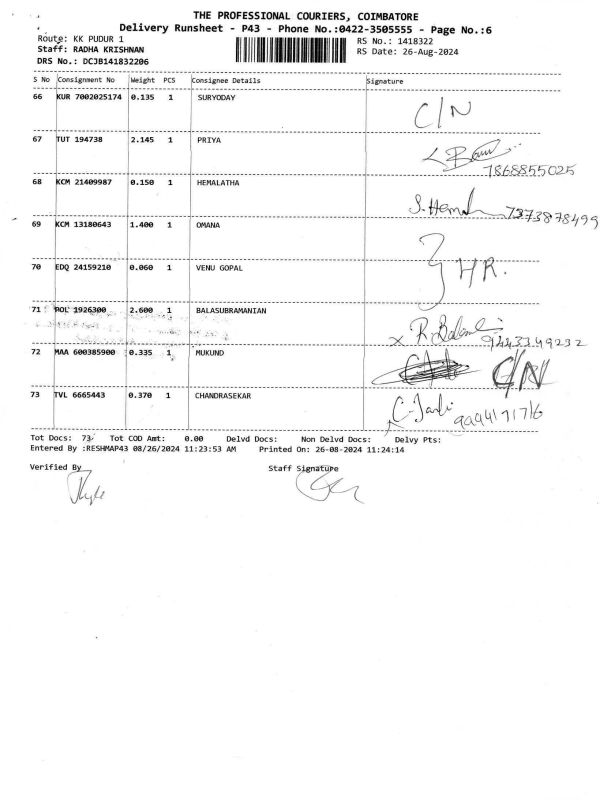 THE PROFESSIONAL COURIERS, COIMBATORE
Delivery Runsheet - P43 - Phone No.:0422-3505555 - Page No.:6
Route: KK PUDUR 1
RS No.: 1418322
Staff: RADHA KRISHNAN
RS Date: 26-Aug-2024
DRS No.: DCJB141832206
S No Consignment No Weight PCS Consignee Details Signature
66 KUR 7002025174 0.135 1 SURYODAY C/N
67 TUT 194738 2.145 1 PRIYA
7868855025
68 KCM 21409987 0.150 1 HEMALATHA
S. Hema 7373878499
69 KCM 13180643 1.400 1 OMANA
70 EDQ 24159210 0.060 1 VENU GOPAL HR.
71 POL 1926300 2.600 1 BALASUBRAMANIAN
9443349232
72 MAA 600385900 0.335 1 MUKUND C/N
73 TVL 6665443 0.370 1 CHANDRASEKAR
Tot Docs: 73 Tot COD Amt: 0.00 Delvd Docs: Non Delvd Docs: Delvy Pts:
Entered By :RESHMAP43 08/26/2024 11:23:53 AM Printed On: 26-08-2024 11:24:14
Verified By Staff Signature